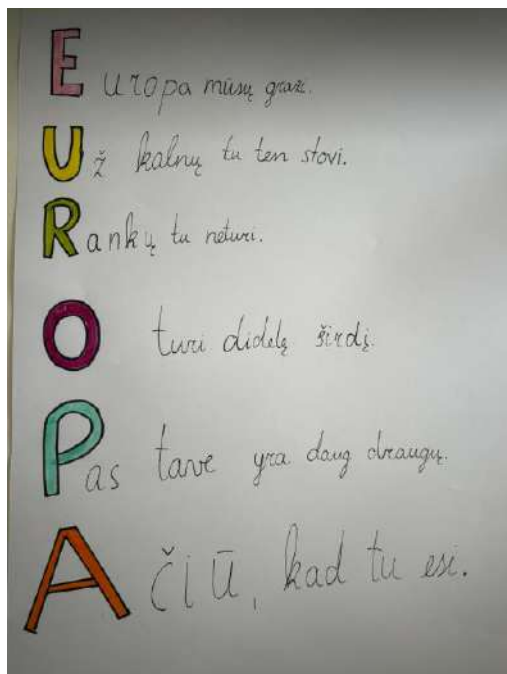 Europa mūsų graži.
Už kalnų tu ten stovi.
Rankų tu neturi.
O turi didelę širdį.
Pas tave yra daug draugų.
Ačiū, kad tu esi.